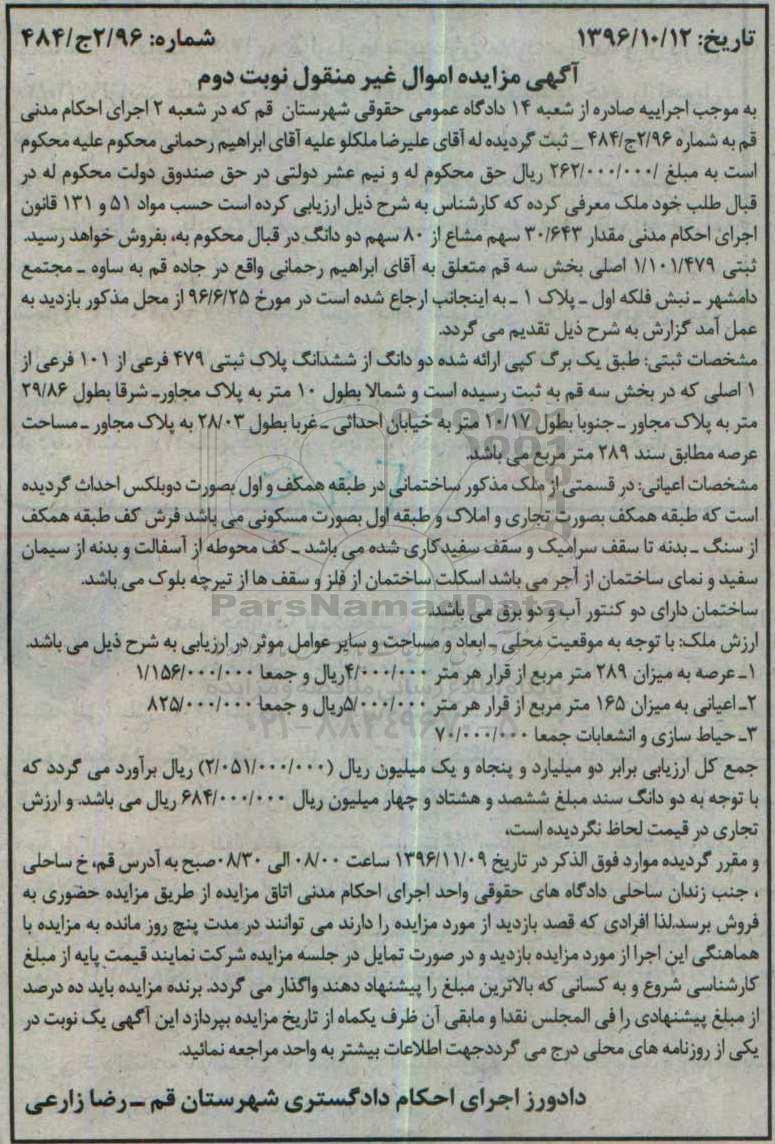 تاریخ: ۱۳۹۶/۱۰/۱۲ شماره: ۲/۹۶ج/۴۸۴
آگهی مزایده اموال غیر منقول نوبت دوم
به موجب اجراییه صادره از شعبه ۱۴ دادگاه عمومی حقوقی شهرستان قم که در شعبه ۲ اجرای احکام مدنی
قم به شماره ۲/۹۶ج/۴۸۴ _ ثبت گردیده له آقای علیرضا ملکلو علیه آقای ابراهیم رحمانی محکوم علیه محکوم
است به مبلغ /۲۶۲/۰۰۰/۰۰۰ ریال حق محکوم له و نیم عشر دولتی در حق صندوق دولت محکوم له در
قبال طلب خود ملک معرفی کرده که کارشناس به شرح ذیل ارزیابی کرده است حسب مواد ۵۱ و ۱۳۱ قانون
اجرای احکام مدنی مقدار ۳۰/۶۴۳ سهم مشاع از ۸۰ سهم دو دانگ در قبال محکوم به، بفروش خواهد رسید.
ثبتی ۱/۱۰۱/۴۷۹ اصلی بخش سه قم متعلق به آقای ابراهیم رحمانی واقع در جاده قم به ساوه _ مجتمع
دامشهر _ نبش فلکه اول _ پلاک ۱ _ به اینجانب ارجاع شده است در مورخ ۹۶/۶/۲۵ از محل مذکور بازدید به
عمل آمد گزارش به شرح ذیل تقدیم می گردد.
مشخصات ثبتی: طبق یک برگ کپی ارائه شده دو دانگ از ششدانگ پلاک ثبتی ۴۷۹ فرعی از ۱۰۱ فرعی از
۱ اصلی که در بخش سه قم به ثبت رسیده است و شمالا بطول ۱۰ متر به پلاک مجاور_ شرقا بطول ۲۹/۸۶
متر به پلاک مجاور _ جنوبا بطول ۱۰/۱۷ متر به خیابان احداثی _ غربا بطول ۲۸/۰۳ به پلاک مجاور _ مساحت
عرصه مطابق سند ۲۸۹ متر مربع می باشد.
مشخصات اعیانی: در قسمتی از ملک مذکور ساختمانی در طبقه همکف و اول بصورت دوبلکس احداث گردیده
است که طبقه همکف بصورت تجاری و املاک و طبقه اول بصورت مسکونی می باشد فرش کف طبقه همکف
از سنگ _ بدنه تا سقف سرامیک و سقف سفیدکاری شده می باشد _ کف محوطه از آسفالت و بدنه از سیمان
سفید و نمای ساختمان از آجر می باشد اسکلت ساختمان از فلز و سقف ها از تیرچه بلوک می باشد.
ساختمان دارای دو کنتور آب و دو برق می باشد.
ParsNamadData
ارزش ملک: با توجه به موقعیت محلی _ ابعاد و مساحت و سایر عوامل موثر در ارزیابی به شرح ذیل می باشد.
۱_ عرصه به میزان ۲۸۹ متر مربع از قرار هر متر ۴/۰۰۰/۰۰۰ریال و جمعا ۱/۱۵۶/۰۰۰/۰۰۰
۲_ اعیانی به میزان ۱۶۵ متر مربع از قرار هر متر ۵/۰۰۰/۰۰۰ریال و جمعا ۸۲۵/۰۰۰/۰۰۰
۳_ حیاط سازی و انشعابات جمعا ۷۰/۰۰۰/۰۰۰
جمع کل ارزیابی برابر دو میلیارد و پنجاه و یک میلیون ریال (۲/۰۵۱/۰۰۰/۰۰۰) ریال برآورد می گردد که
با توجه به دو دانگ سند مبلغ ششصد و هشتاد و چهار میلیون ریال ۶۸۴/۰۰۰/۰۰۰ ریال می باشد. و ارزش
تجاری در قیمت لحاظ نگردیده است،
و مقرر گردیده موارد فوق الذکر در تاریخ ۱۳۹۶/۱۱/۰۹ ساعت ۰۸/۰۰ الی ۰۸/۳۰صبح به آدرس قم، خ ساحلی
، جنب زندان ساحلی دادگاه های حقوقی واحد اجرای احکام مدنی اتاق مزایده از طریق مزایده حضوری به
فروش برسد.لذا افرادی که قصد بازدید از مورد مزایده را دارند می توانند در مدت پنج روز مانده به مزایده با
هماهنگی این اجرا از مورد مزایده بازدید و در صورت تمایل در جلسه مزایده شرکت نمایند قیمت پایه از مبلغ
کارشناسی شروع و به کسانی که بالاترین مبلغ را پیشنهاد دهند واگذار می گردد. برنده مزایده باید ده درصد
از مبلغ پیشنهادی را فی المجلس نقدا و مابقی آن ظرف یکماه از تاریخ مزایده بپردازد این آگهی یک نوبت در
یکی از روزنامه های محلی درج می گرددجهت اطلاعات بیشتر به واحد مراجعه نمائید.
دادورز اجرای احکام دادگستری شهرستان قم _ رضا زارعی